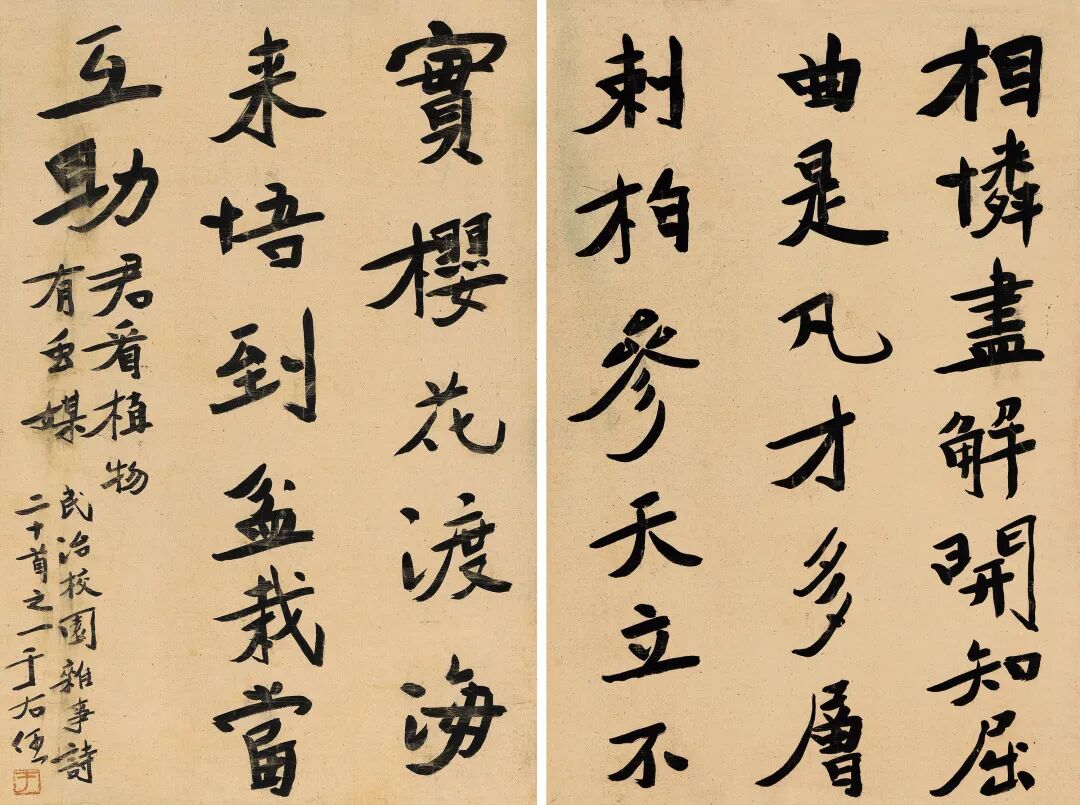 相憐盡解開知屈
曲是凡才多層
刺柏參天立不
實櫻花渡海
来培到盆栽當
互助
君看植物
有虫媒
民治校園雜事詩
二十首之一于右任